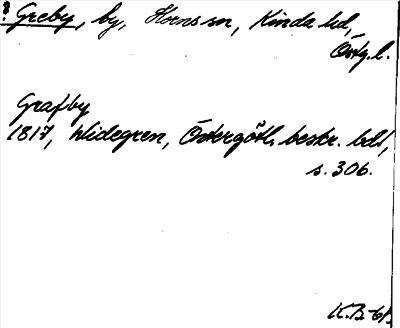 ? Greby, by, Horns sn, Kinda hd,
Östg.l.
Grafby
1817, Widegren, Östergötl. beskr. bd 1,
s. 306.
K.B-61.